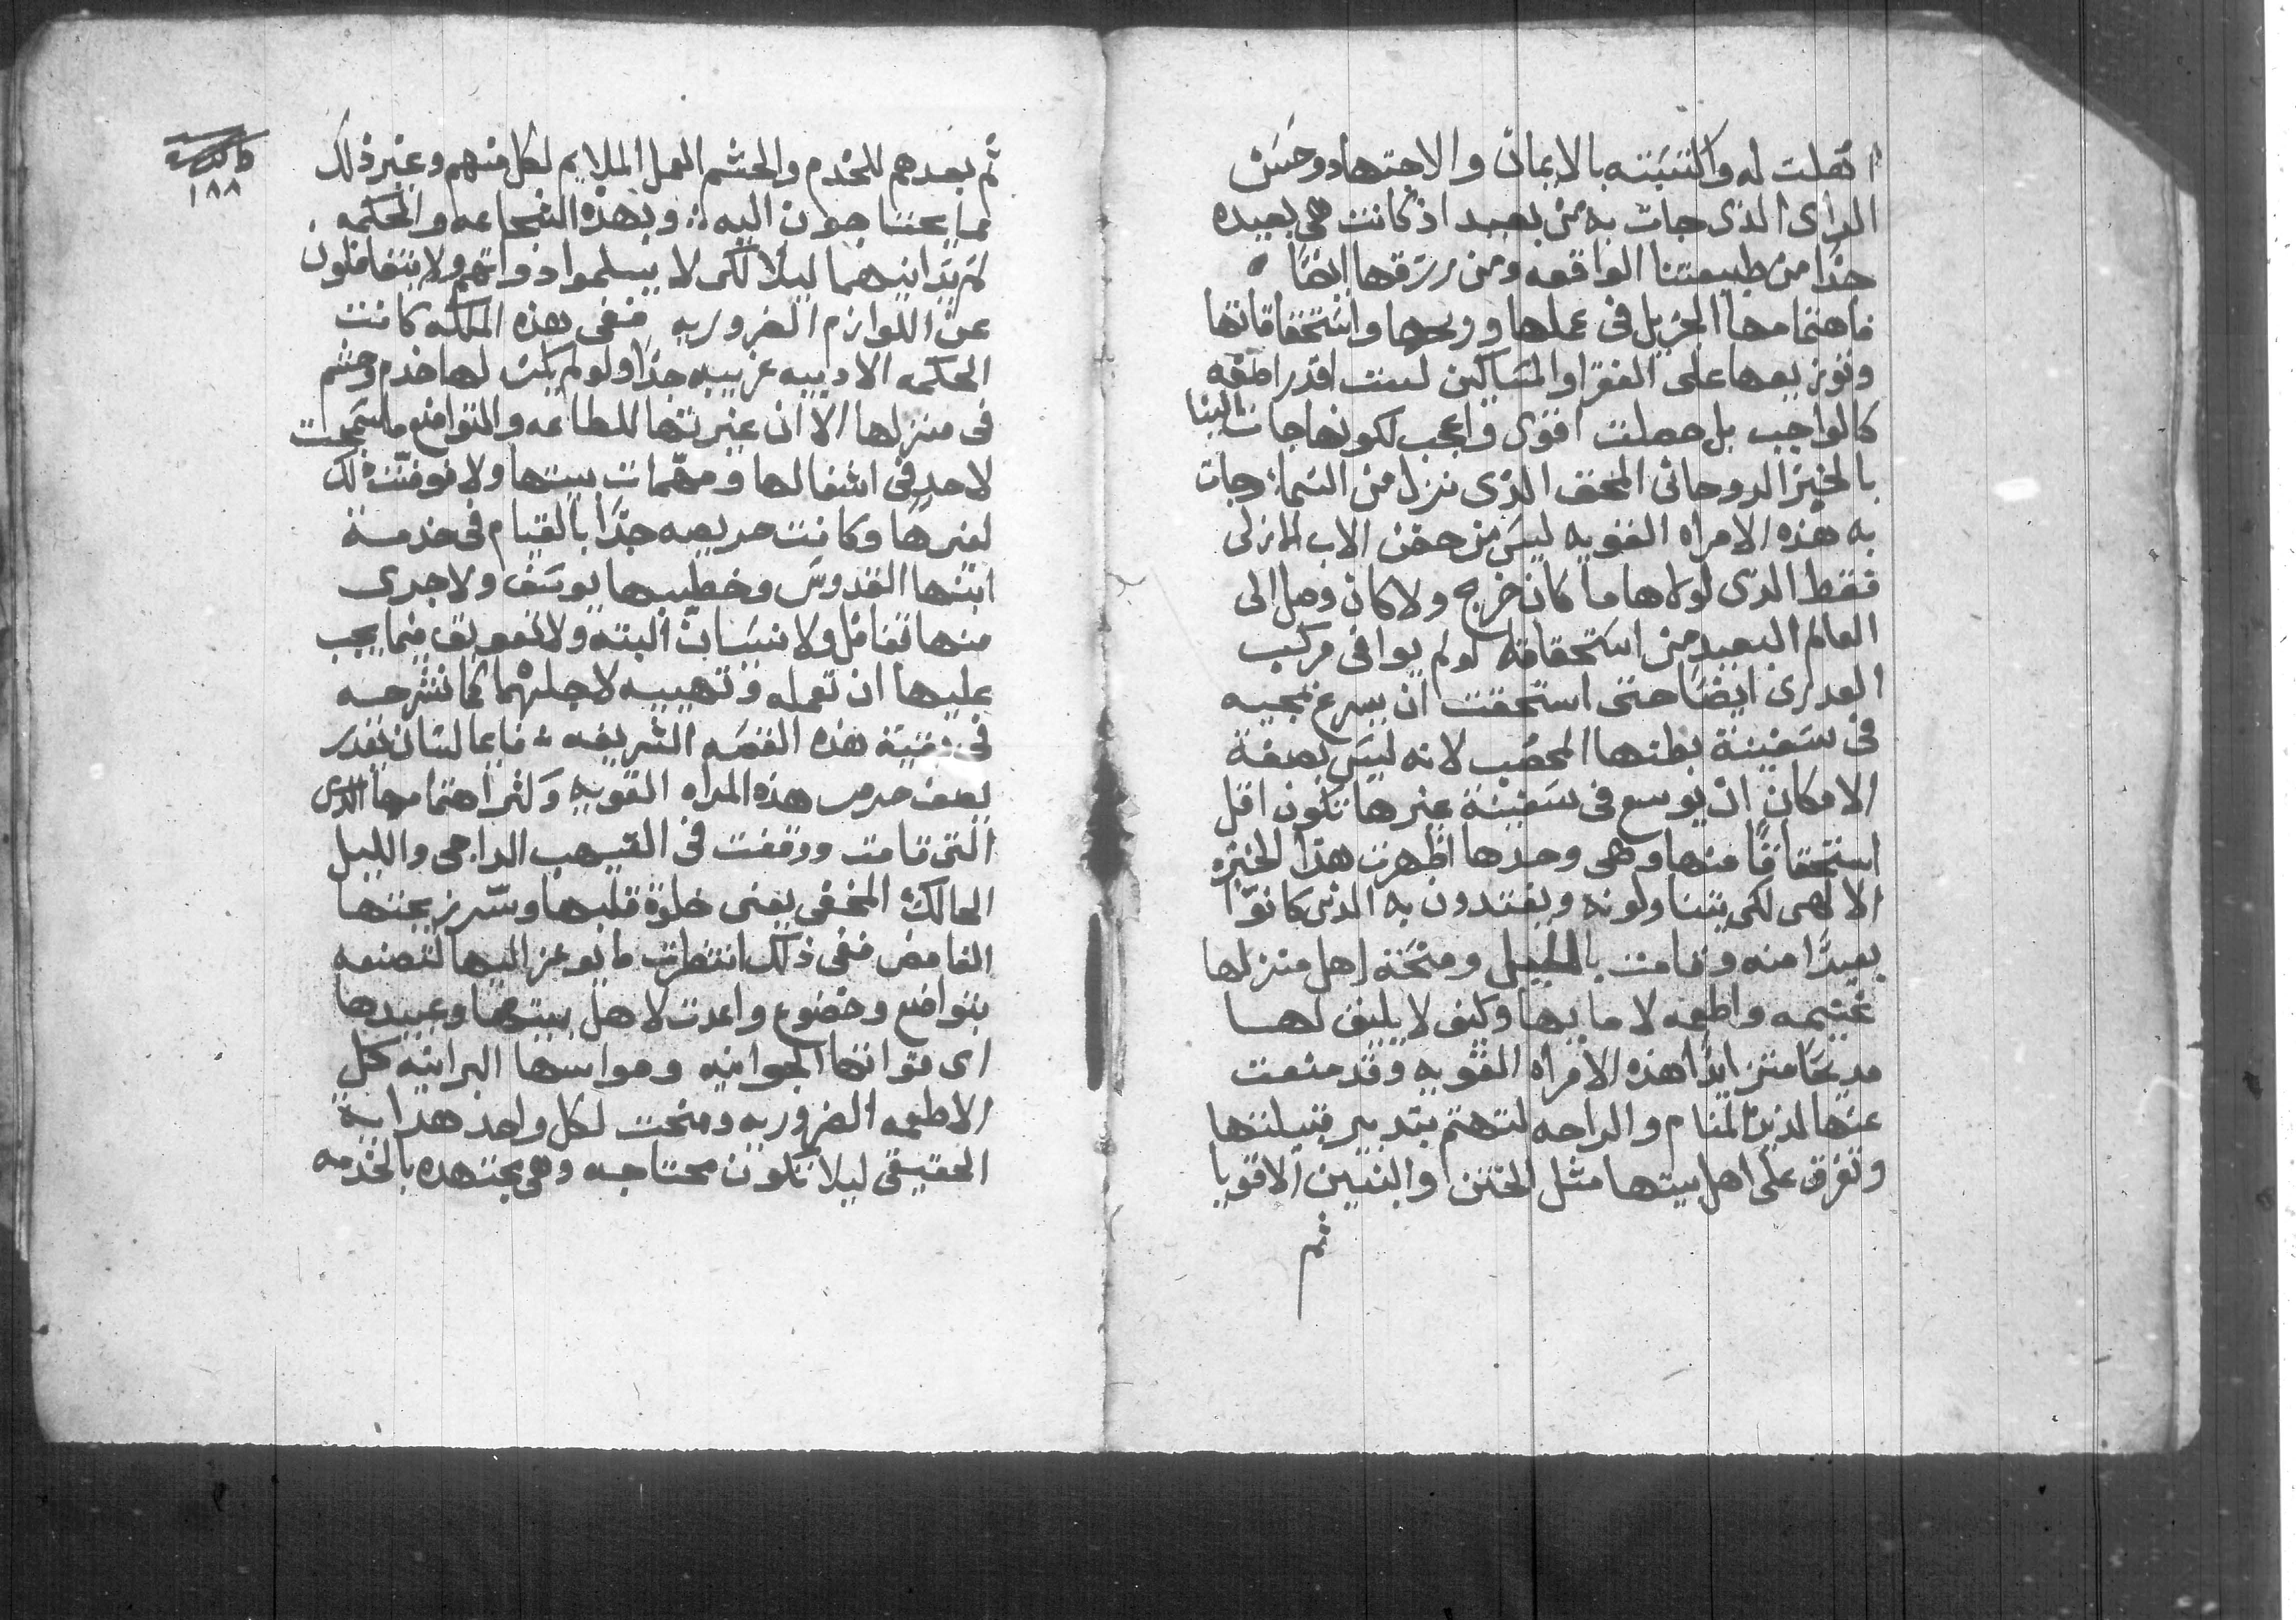 اتهلت له واكتسَبته بالايمان والاجتهاد وحسَن
الراى الذى جات به من بعيد اذ كانت هى بعيده
جدًا من طبيعتنا الواقعه ومن رزقها ايضًا
فاهتمامها الجزيل فى عملها وربحها واستحقاقاتها
وتوزيعها على الفقرا والمسَاكين ليست اقدر اصفه
كالواجب بل حصلت اقوى واعجب لكونها جات الينا
بالخبز الروحانى المحق الذى نزل من السَما، وجات
به هذه الامراه القويه ليسَ من حضن الاب الازلى
فقط الذى لولاها ما كان خرج ولا كان وصل الى
العالم البعيد من استحقاقه لو لم يوافى مركب
العدرى ايضًا حتى استحقت ان يسرع بمجيه
فى سَفينة بطنها المخصب لانه ليسَ بصفة
الامكان ان يوسع فى سَفينة غيرها تكون اقل
استحقاقًا منها وهى وحدها اظهرت هذا الخبزه
الالهى لكى يتناولونه ويفتدون به الذى كانوا
بعيدًا منه وقامت بالليل ومنحَت اهل منزلها
غنيمه واطعمه لامايها وكيف لا يليق لهـا
مديحًا متزايدًا هذه الامراه القويه وقد منعت
عنها لذيذ المنام والراحه لتهتم بتدبير قبيلتها
وتفرق على اهل بيتها مثل الختن والبنين الاقويا
ثم
١٨٨
ثم بعدهم للخدم والحشم العمل الملايم لكل منهم وغير ذلك
مما يحتاجون اليه :· وبهذه الشجاعه والحكمه
ليلا لكى لا يسلموا ذواتهم ولا يتغافلون
عن اللوازم الضروريه ففى هذه الملكه كانت
الحكمه الادبيه غريبه جدًا ولو لم يكن لها خدم وحشم
فى منزلها الا ان غيرتها للطاعه والتواضع ما سمحت
لاحدٍ فى اشغالها ومهمات بيتها ولا فوضت ذلك
لغيرها وكانت حريصه جدًا بالقيام فى خدمـة
ابنها القدوسَ وخطيبها يوسَف ولا جرى
منها تغافل ولا نسَيان البته ولا تعويق فيما يجب
عليها ان تعمله وتهيبه لاجلهما كما نشرحـه
فى بقية هذه القصَه الشريفه ؛ فايما لسَان يقدر
يصف حرص هذه المراه القويه وكثر اهتمامها الذى
التى قامت ووقفت فى الغيهب الداجى والليل
الحالك المخفى يعنى خلوة قلبها وسّر زيجتها
الغامض ففى ذلك انتظرت ما يوعز اليها لتصنعه
بتواضع وخضوع واعدت لاهل بيتها وعبيدها
اى قواتها الجوانيه وحواسها البرانيه كل
الاطعمه الضروريه ومنحت لكل واحد هداية
الحقيقى ليلا تكون محتاجه وهى مجتهده بالخدمه